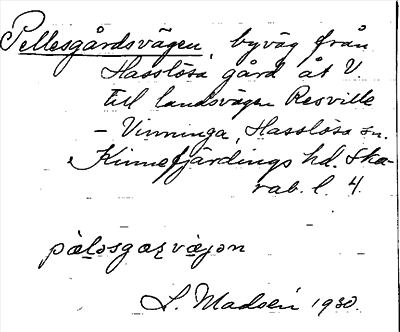 Pellesgårdsvägen, byväg från
Hasslösa gård åt V.
till landsvägen Resville
– Vinninga, Hasslösa sn.
Kinnefjärdings hd. Ska-
rab. l. 4.
pæ̀ləsgaʐvæjən
L. Madsén 1930.